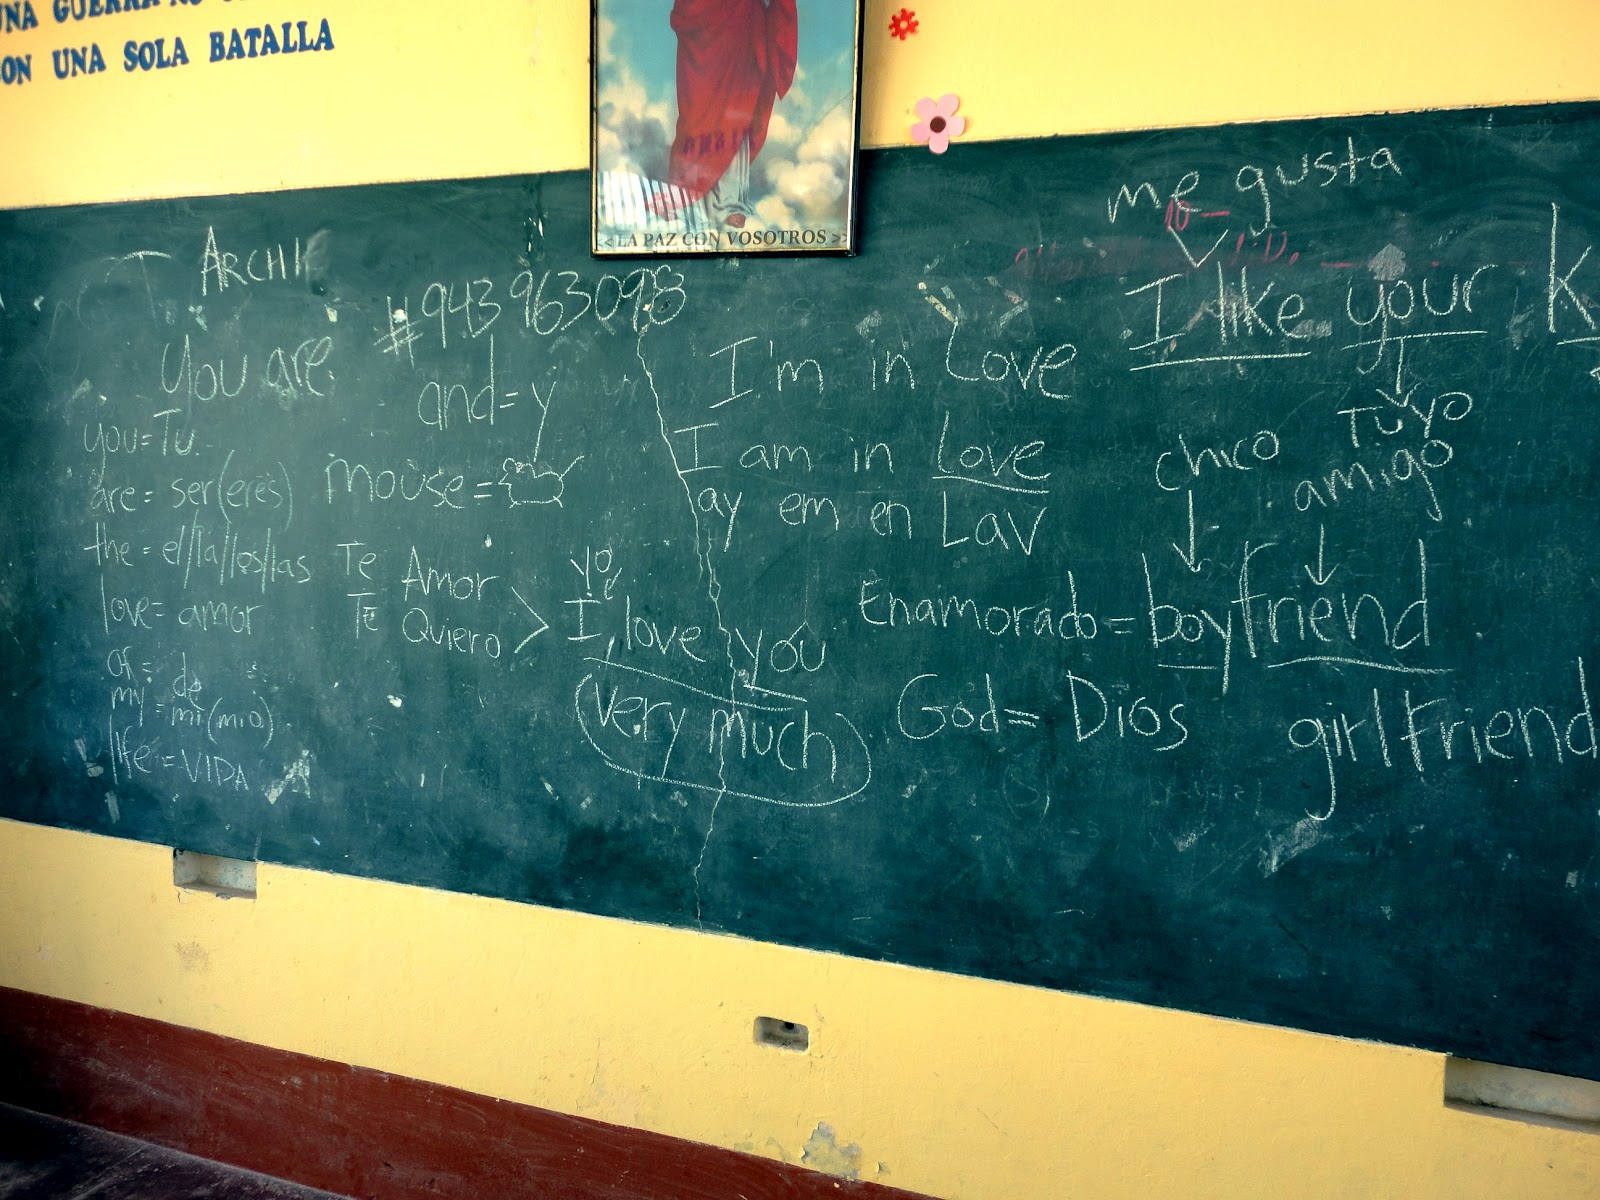 UNA GUERRA NO
CON UNA SOLA BATALLA
<< LA PAZ CON VOSOTROS >>
ARCHI
#943963098
You are
and=y
you=Tu.
are= ser(eres)
mouse=
the = el/la/los/las
love= amor
of = de
my = mi(mio)
life = VIDA
Te Amor
Te Quiero > I love you
yo
(very much)
I'm in Love
I am in Love
ay em en Lav
me gusta
I like your K
Tuyo
chico
amigo
Enamorado = boyfriend
God= Dios
girlfriend